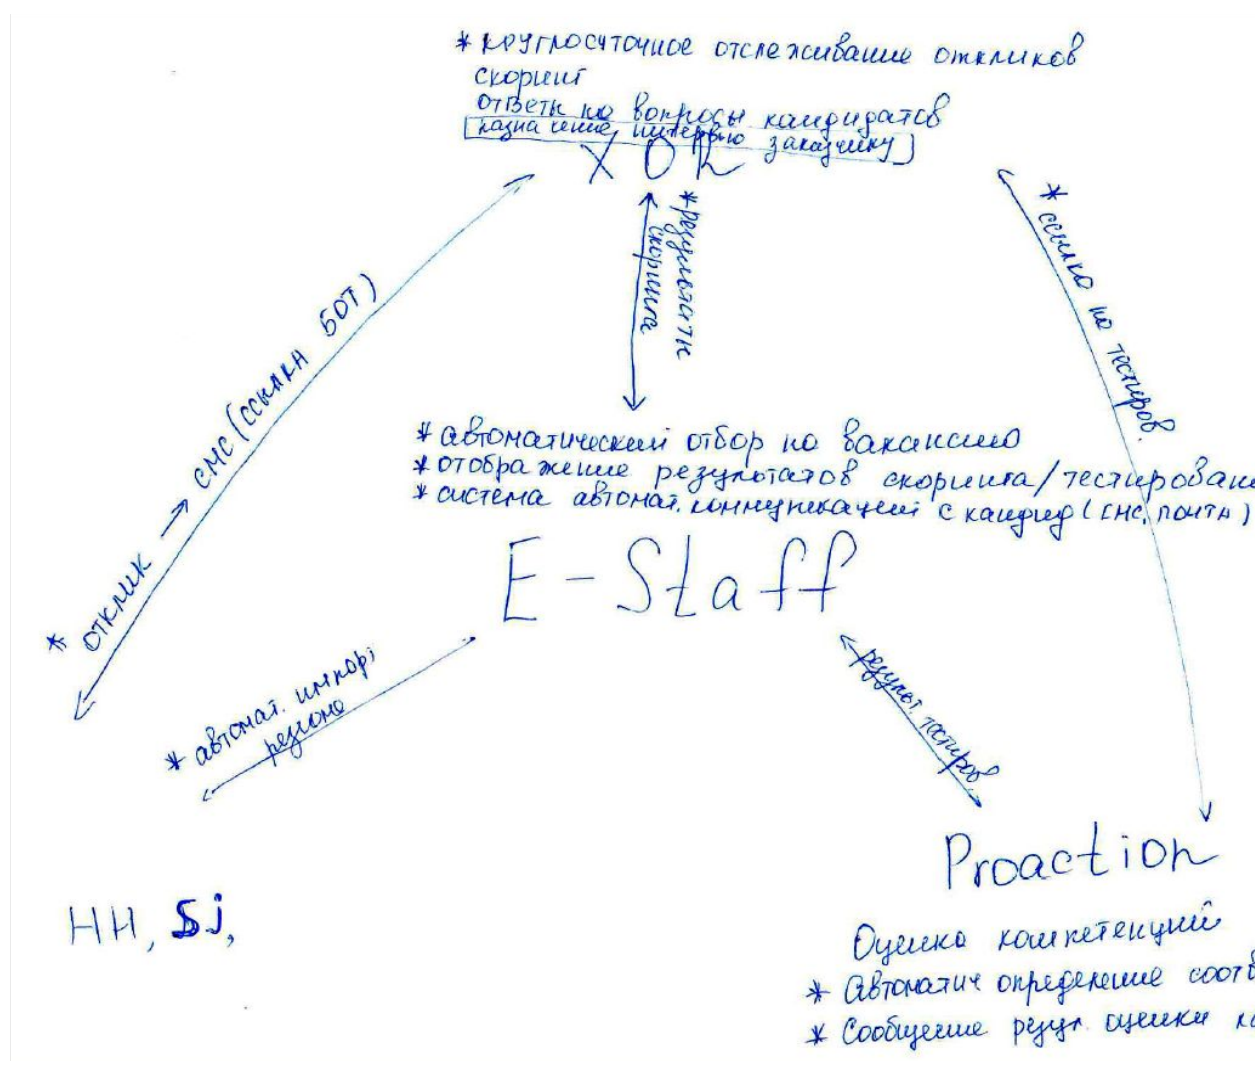 * круглосуточное отслеживание откликов
скоринг
ответы на вопросы кандидатов
[назначение интервью заказчику]
XOR
* результаты
скоринга
* ссылка на тестиров.
* отклик → СМС (ссылка БОТ)
* автоматический отбор на вакансию
* отображение результатов скоринга/тестирован
* система автомат. коммуникаций с кандид (СМС, почта)
E-Staff
* автомат. импорт
резюме
результ. тестиров.
HH, Sj,
Proaction
Оценка компетенций
* Автоматич определение соотв
* Сообщение резул. оценки ка